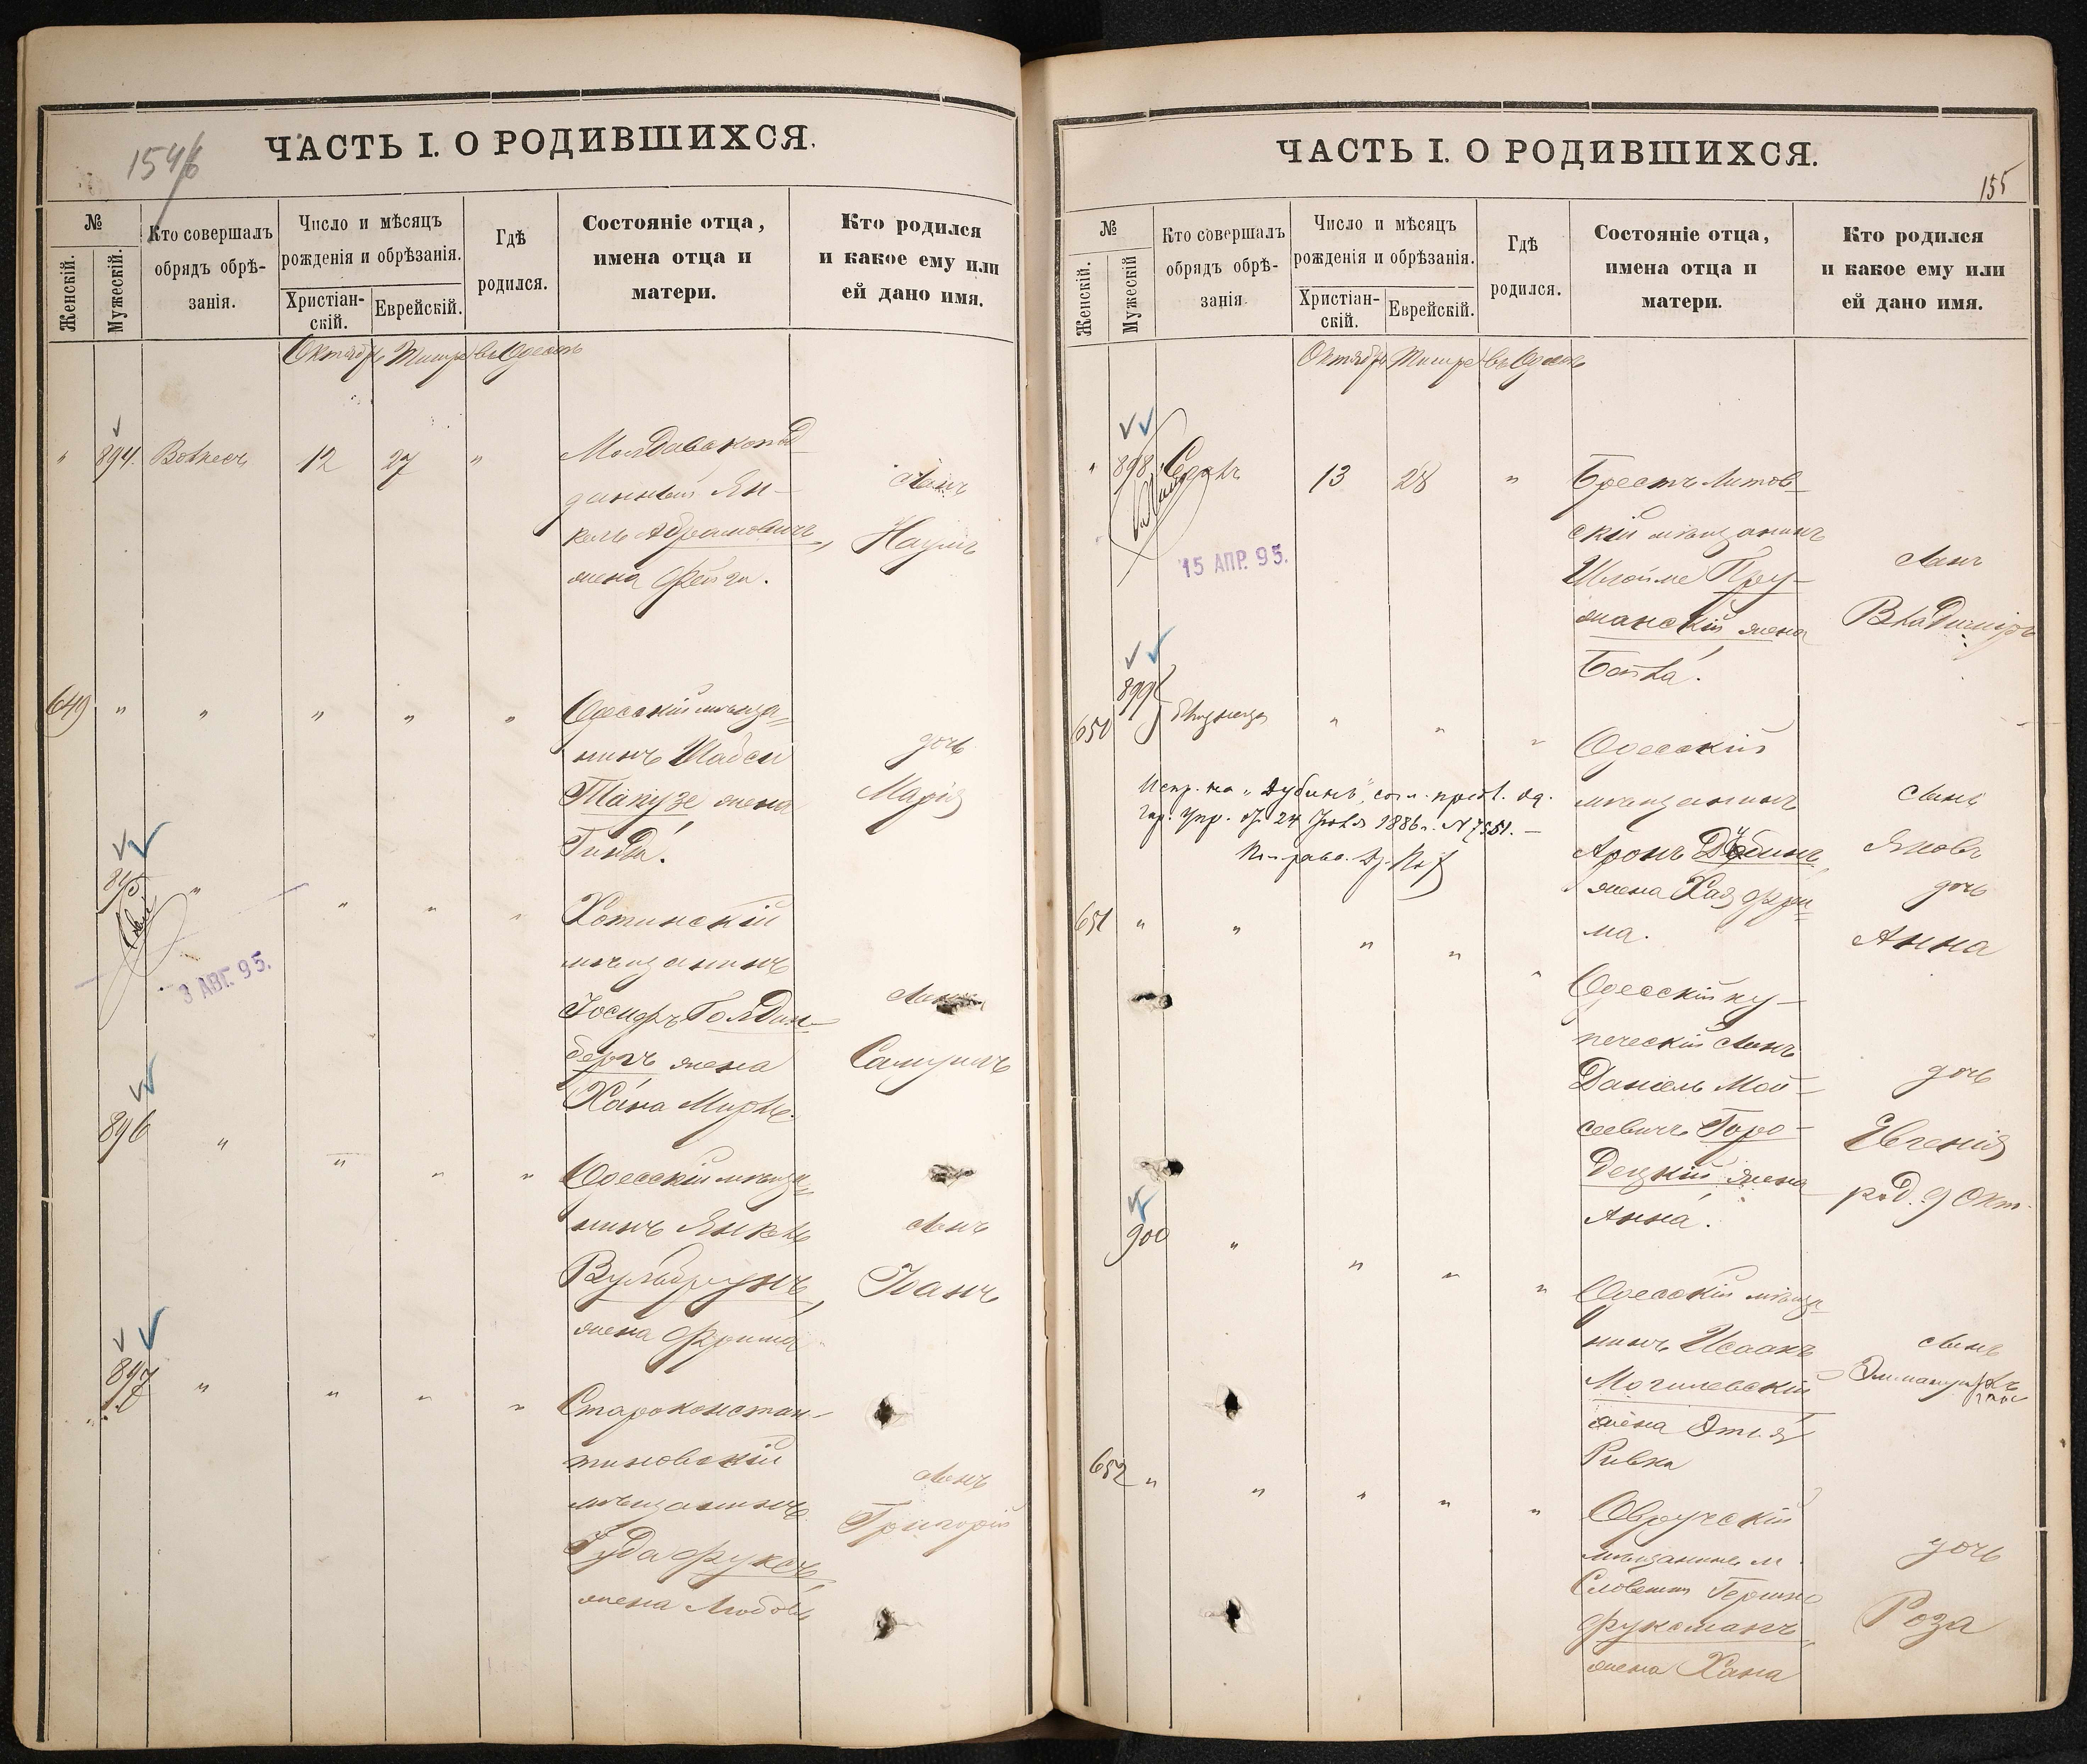 154/б
ЧАСТЬ I. О РОДИВШИХСЯ.
№
Женскій.
Мужескій.
Кто совершалъ
обрядъ обрѣ-
занія.
Число и мѣсяцъ
рожденія и обрѣзанія.
Христіан-
скій.
Еврейскій.
Гдѣ
родился.
Состояніе отца,
имена отца и
матери.
Кто родился
и какое ему или
ей дано имя.
Октябрь Тишре въ Одессѣ
" 894. 12 27 "
Молдавскопод-
данный Ян-
кель Абрамовичъ,
жена Фейга.
сынъ
Наумъ
649 " " " " "
Одесскій мѣща-
нинъ Шабси
Тапузе жена
Гинда.
дочь
Марія
895 " " " "
3 АВГ. 95.
Хотинскій
мѣщанинъ
Іосифъ Голдин-
бергъ жена
Хана Мирле.
сынъ
Самуилъ
896 " " " "
Одесскій мѣща-
нинъ Янкель
Вульфсунъ,
жена Фрима
сынъ
Иванъ
897 " " " "
Староконстан-
тиновскій
мѣщанинъ
Іуда Фуксъ,
жена Любовь
сынъ
Григорій
ЧАСТЬ I. О РОДИВШИХСЯ.
155
№
Женскій.
Мужескій
Кто совершалъ
обрядъ обрѣ-
занія.
Число и мѣсяцъ
рожденія и обрѣзанія.
Христіан-
скій.
Еврейскій.
Гдѣ
родился.
Состояніе отца,
имена отца и
матери.
Кто родился
и какое ему или
ей дано имя.
Октябрь Тишре въ Одессѣ
" 898 13 28 "
15 АПР. 95.
Брестъ Литов-
скій мѣщанинъ
Шлойме Пру-
жанскій жена
Бейла.
сынъ
Владиміръ
899
650 " " "
Одесскій
мѣщанинъ
Аронъ Дубинъ,
жена Хая Фри-
ма.
Испр. на "Дубинъ", согл. предл. Од.
Гор. Упр. отъ 24 Іюля 1886 г. № 7551.—
сынъ
Яковъ
дочь
Анна
651 " " " " "
Одесскій ку-
печескій сынъ
Даніель Мой-
сеевичъ Горо-
децкій жена
Анна.
дочь
Евгенія
род. 9 Окт.
900 " " " "
Одесскій мѣща-
нинъ Исаакъ
Могилевскій
жена Этля
Ривка
сынъ
Эммануилъ
652 " " " " "
Овручскій
мѣщанинъ м.
Словешни Гершко
Фуксманъ,
жена Хана
дочь
Роза